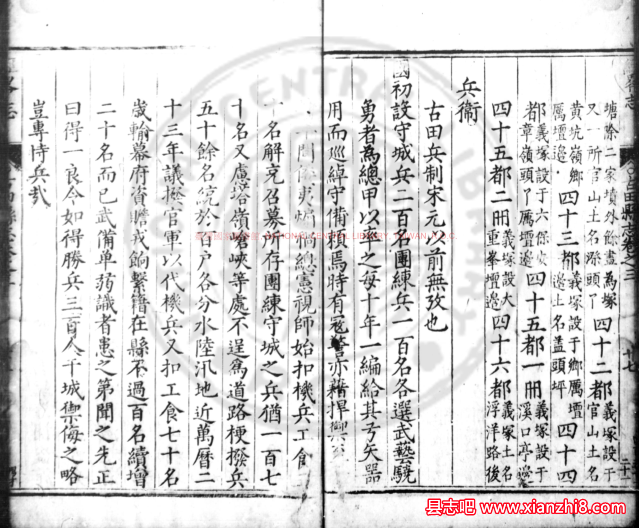 塘除二家墳外餘盡為塚 四十二都義塚設于官山土名
又一所官山土名漈頭丁
黃坑嶺鄉厲壇邊 四十三都義塚設于鄉厲壇邊土名盖頭坪 四十四
都義塚設于六保安章嶺頭丁厲壇邊 四十五都一冊義塚設于溪口亭邊
四十五都二冊義塚設大重峯壇邊 四十六都義塚土名浮洋路後
兵衛
古田兵制宋元以前無攷也
國初設守城兵二百名團練兵一百名各選武藝驍
勇者為總甲以遊之每十年一編給其弓矢器
用而巡綽守備賴焉時有寇警亦藉捍禦
視師始扣機兵工食
名解充召募所存團練守城之兵猶一百七
十名又慮塔嶺嶒峽等處不逞為道路梗撥兵
五十餘名統於百戶各分水陸汛地近萬曆二
十三年議撥官軍以代機兵又扣工食七十名
歲輸幕府資贍戎餉繫籍在縣不過百名續增
二十名而已武備單弱識者患之第聞之先正
曰得一良令如得勝兵三百人干城禦侮之略
豈專恃兵哉
古田縣志卷之三
十七
县志吧 www.xianzhi8.com